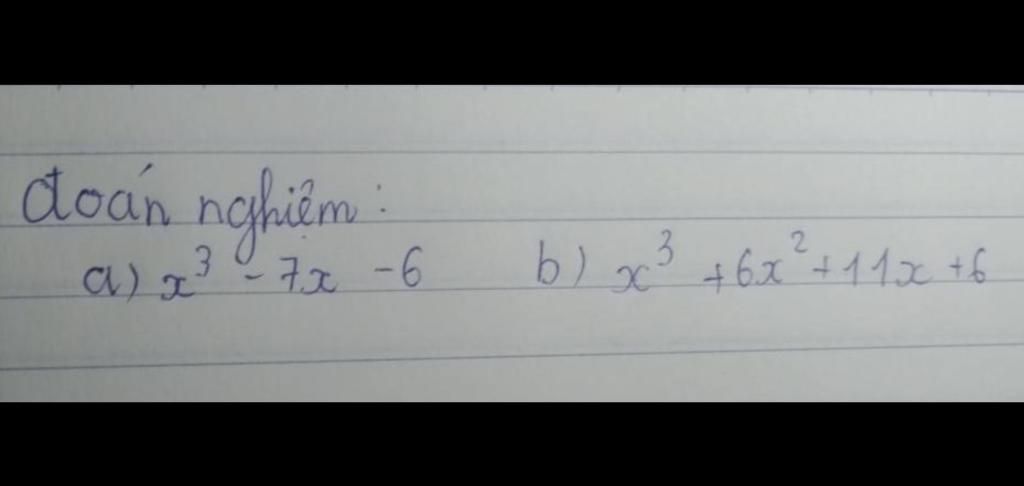 đoán nghiệm:
a) x³ - 7x - 6 b) x³ + 6x² + 11x + 6